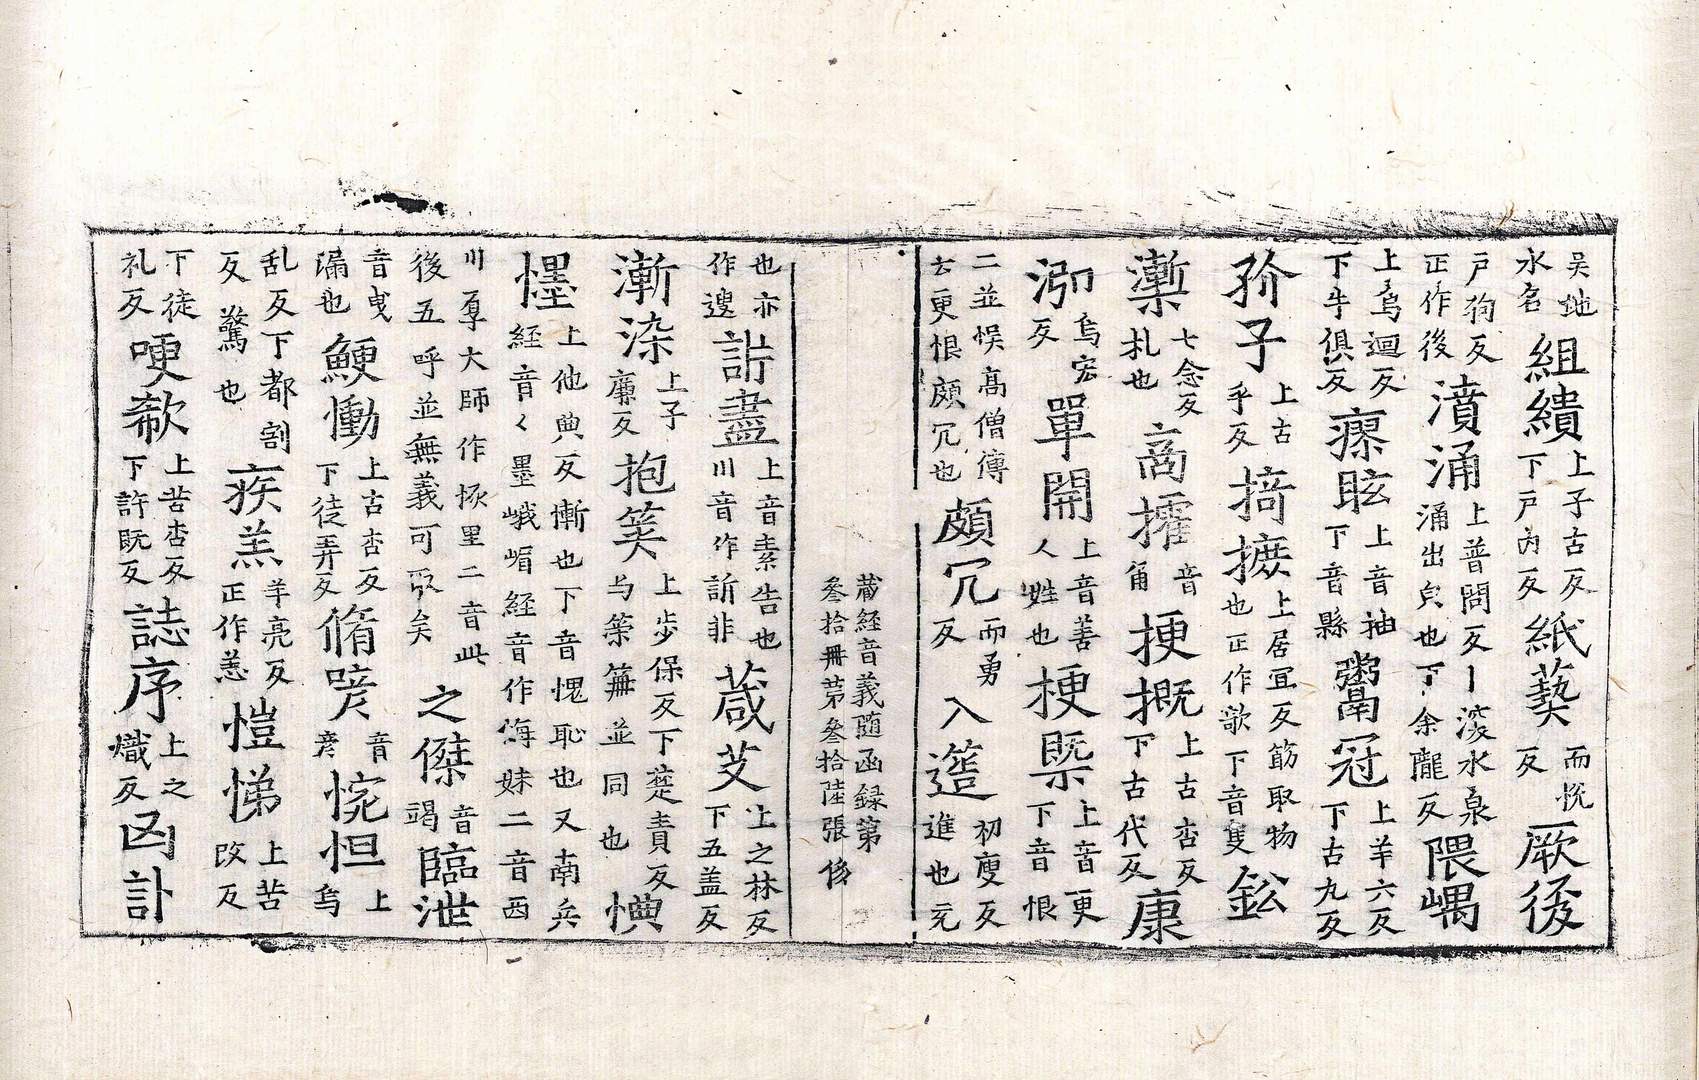 吳地水名組繢上子古反下戶內反紙蓺而悅反厥後
戶狗反正作後濆涌上普問反丨浚水泉涌出皃也下余隴反隈嵎
上烏迴反下牛俱反㾭眩上音袖下音縣鬻冠上羊六反下古九反
孙子上古乎反掎摭上居宜反筋取物也正作㰰下音隻鈆
槧七念反札也啇擢音甬梗概上古杏反下古代反康
泓烏宏反單開上音善人姓也梗槩上音更下音恨
二並悮髙僧傳去更恨頗冗也頗冗而勇反入簉初廋反進也充
蔵經音義随函録第叁拾冊第叁拾陸張 俊
也亦作遡訴盡上音素告也川音作訢非葴芠上之林反下五盖反
漸染上子廉反抱筴上步保反下楚責反与筞筭並同也㥏
㦄上他典反慚也下音愧恥也又南兵經音〻墨峨嵋經音作㑄妹二音西
川厚大師作㧻里二音此後五呼並無義可取矣之傑音竭臨泄
音曵漏也鯁慟上古杏反下徒弄反脩喭音彦惋怛上烏
乱反下都割反驚也疾羔羊亮反正作恙愷悌上苦改反
下徒礼反哽欷上苦杏反下許既反誌序上之熾反㐫訃